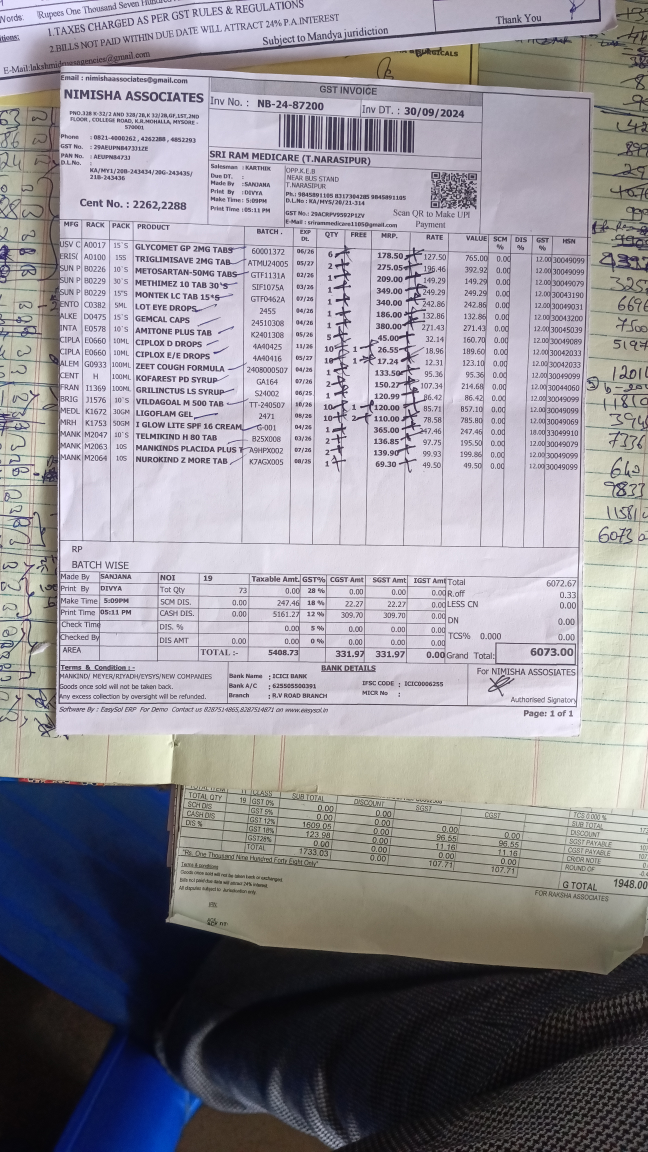 Words:
Rupees One Thousand Seven
1.TAXES CHARGED AS PER GST RULES & REGULATIONS
2.BILLS NOT PAID WITHIN DUE DATE WILL ATTRACT 24% P.A.INTEREST
Subject to Mandya juridiction
Thank You
Email : nimishaassociates@gmail.com
GST INVOICE
NIMISHA ASSOCIATES
Inv No. : NB-24-87200
Inv DT. : 30/09/2024
PNO.328 K-32/2 AND 328/2B,K 32/2B,GF,1ST,2ND
FLOOR , COLLEGE ROAD, K.R.MOHALLA, MYSORE -
570001
Phone : 0821-4000262 , 4262288 , 4852293
GST No. : 29AEUPN8473J1ZE
PAN No. : AEUPN8473J
D.L.No. :
KA/MY1/20B-243434/20G-243435/
21B-243436
Cent No. : 2262,2288
SRI RAM MEDICARE (T.NARASIPUR)
Salesman : KARTHIK
Due DT. :
Made By : SANJANA
Print By : DIVYA
Make Time : 5:09PM
Print Time : 05:11 PM
OPP.K.E.B
NEAR BUS STAND
T.NARASIPUR
Ph: 9845891105 8317304285 9845891105
D.L.No : KA/MYS/20/21-314
GST No.: 29ACRPV9592P1ZV
E-Mail : srirammedicare1105@gmail.com
Scan QR to Make UPI
Payment
MFG RACK PACK PRODUCT BATCH . EXP DT. QTY FREE MRP. RATE VALUE SCM % DIS % GST % HSN
USV C A0017 15`S GLYCOMET GP 2MG TABS 60001372 06/26 6 178.50 127.50 765.00 0.00 12.00 30049099
ERIS( A0100 15S TRIGLIMISAVE 2MG TAB ATMU24005 05/27 2 275.05 196.46 392.92 0.00 12.00 30049099
SUN P B0226 10`S METOSARTAN-50MG TABS GTF1131A 02/26 1 209.00 149.29 149.29 0.00 12.00 30049079
SUN P B0229 30`S METHIMEZ 10 TAB 30'S SIF1075A 03/26 1 349.00 249.29 249.29 0.00 12.00 30043190
SUN P B0229 15"S MONTEK LC TAB 15*S GTF0462A 07/26 1 340.00 242.86 242.86 0.00 12.00 30049031
ENTO C0382 5ML LOT EYE DROPS 2455 04/26 1 186.00 132.86 132.86 0.00 12.00 30043200
ALKE D0475 15"S GEMCAL CAPS 24510308 04/26 1 380.00 271.43 271.43 0.00 12.00 30045039
INTA E0578 10`S AMITONE PLUS TAB K2401308 05/26 5 45.00 32.14 160.70 0.00 12.00 30049089
CIPLA E0660 10ML CIPLOX D DROPS 4A40425 11/26 10 1 26.55 18.96 189.60 0.00 12.00 30042033
CIPLA E0660 10ML CIPLOX E/E DROPS 4A40416 05/27 10 1 17.24 12.31 123.10 0.00 12.00 30042033
ALEM G0933 100ML ZEET COUGH FORMULA 2408000507 04/26 1 133.50 95.36 95.36 0.00 12.00 30049099
CENT H 100ML KOFAREST PD SYRUP GA164 07/26 2 150.27 107.34 214.68 0.00 12.00 30044060
FRAN I1369 100ML GRILINCTUS LS SYRUP S24002 06/25 1 120.99 86.42 86.42 0.00 12.00 30049099
BRIG J1576 10`S VILDAGOAL M 500 TAB TT-240507 10/26 10 1 120.00 85.71 857.10 0.00 12.00 30049099
MEDL K1672 30GM LIGOFLAM GEL 2471 08/26 10 2 110.00 78.58 785.80 0.00 12.00 30049069
MRH K1753 50GM I GLOW LITE SPF 16 CREAM G-001 04/26 1 365.00 247.46 247.46 0.00 18.00 30049910
MANK M2047 10`S TELMIKIND H 80 TAB B25X008 03/26 2 136.85 97.75 195.50 0.00 12.00 30049079
MANK M2063 10S MANKINDS PLACIDA PLUS T A9HPX002 07/26 2 139.90 99.93 199.86 0.00 12.00 30049099
MANK M2064 10S NUROKIND Z MORE TAB K7AGX005 08/25 1 69.30 49.50 49.50 0.00 12.00 30049099
RP
BATCH WISE
Made By SANJANA NOI 19 Taxable Amt. GST% CGST Amt SGST Amt IGST Amt Total 6072.67
Print By DIVYA Tot Qty 73 0.00 28 % 0.00 0.00 0.00 R.off 0.33
Make Time 5:09PM SCM DIS. 0.00 247.46 18 % 22.27 22.27 0.00 LESS CN 0.00
Print Time 05:11 PM CASH DIS. 0.00 5161.27 12 % 309.70 309.70 0.00
Check Time DIS. % 5 % DN 0.00
Checked By DIS AMT 0.00 0.00 0 % 0.00 0.00 TCS% 0.000 0.00
AREA TOTAL :- 5408.73 331.97 331.97 0.00 Grand Total: 6073.00
Terms & Condition :-
MANKIND/ MEYER/RIYADH/EYSYS/NEW COMPANIES
Goods once sold will not be taken back.
Any excess collection by oversight will be refunded.
BANK DETAILS
Bank Name : ICICI BANK
Bank A/C : 625505500391
Branch : R.V ROAD BRANCH
IFSC CODE : ICIC0006255
MICR No :
For NIMISHA ASSOSIATES
Authorised Signatory
Software By : EasySol ERP For Demo Contact us 8287514865,8287514871 on www.easysol.in
Page: 1 of 1
TOTAL QTY 19 GST 0% SUB TOTAL DISCOUNT SGST CGST TCS 0.000 %
SCH DIS GST 5% 0.00 0.00 SUB TOTAL
CASH DIS GST 12% 1609.05 0.00 96.55 96.55 DISCOUNT
DIS % GST 18% 123.98 0.00 11.16 11.16 SGST PAYABLE
GST28% 0.00 0.00 CGST PAYABLE
TOTAL 1733.03 0.00 107.71 107.71 CR/DR NOTE
ROUND OF
"Rs. One Thousand Nine Hundred Forty Eight Only"
G TOTAL 1948.00
Terms & conditions
Goods once sold will not be taken back or exchanged.
Bills not paid due date will attract 24% interest.
FOR RAKSHA ASSOCIATES